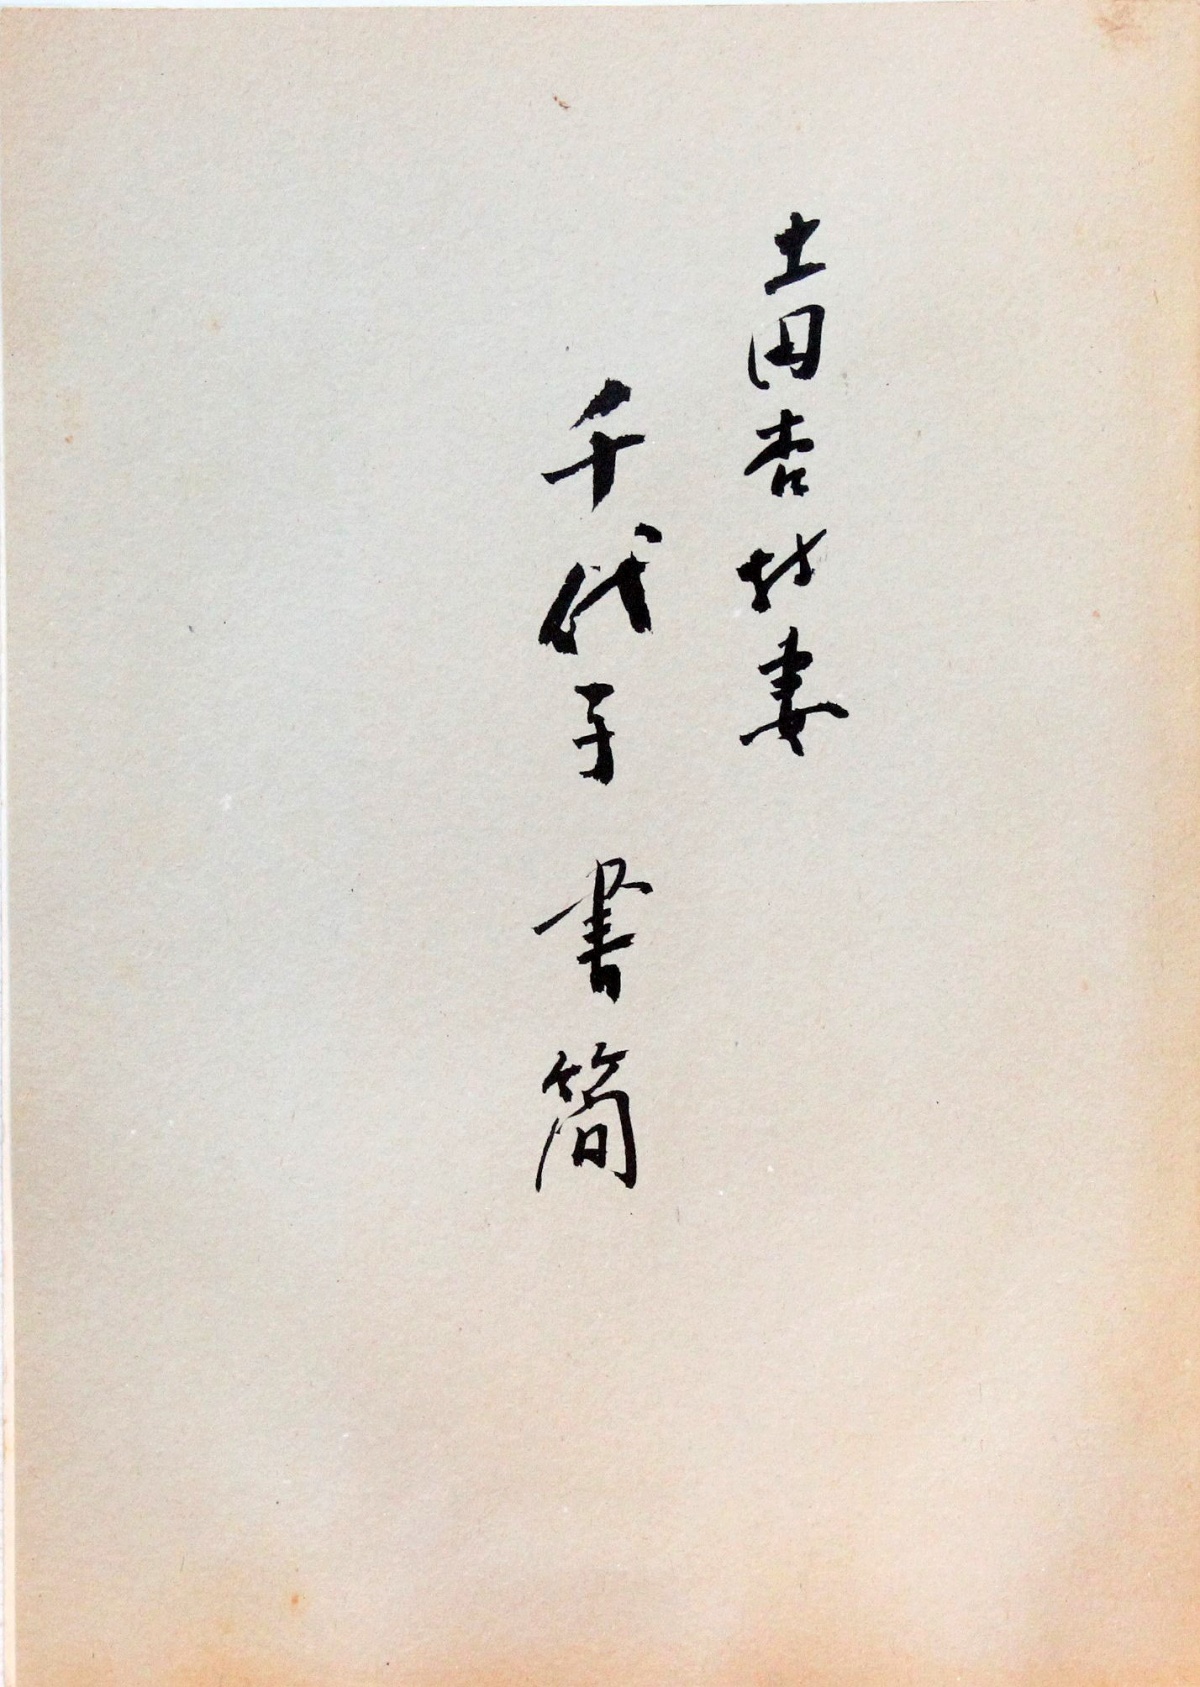 土田杏村妻
千代子 書簡